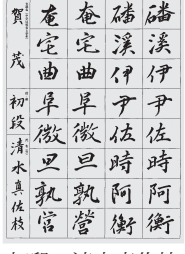 磻溪伊尹佐時阿衡
磻溪伊尹佐時阿衡
奄宅曲阜微旦孰營
奄宅曲阜微旦孰營
賀茂 初段 清水真佐枝